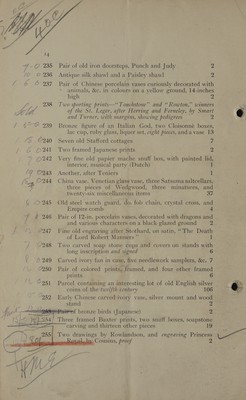 14
235 Pair of old iron doorstops, Punch and Judy 2
236 Antique silk shawl and a Paisley shawl 2
237 Pair of Chinese porcelain vases curiously decorated with
animals, &c, in colours on a yellow ground, 14-inches
high 2
238 Two sporting prints—"Touchstone" and "Rowton," winners
of the St. Leger, after Herring and Ferneley, by Smart
and Turner, with margins, showing pedigrees 2
239 Bronze figure of an Italian God, two Cloisonné boxes,
lac cup, ruby glass, liqueur set, eight pieces, and a vase 13
240 Seven old Stafford cottages 7
241 Two framed Japanese prints 2
242 Very fine old papier mache snuff box, with painted lid,
interior, musical party (Dutch) 1
243 Another, after Teniers 1
244 China vase, Venetian glass vase, three Satsuma saltcellars,
three pieces of Wedgwood, three miniatures, and
twenty-six miscellaneous items 37
245 Old steel watch guard, do fob chain, crystal cross, and
Empire comb
246 Pair of 12-in. porcelain vases, decorated with dragons and
and various characters on a black glazed ground 2
247 Fine old engraving after Stothard, on satin, "The Death
of Lord Robert Manners
248 Two carved soap stone cups and covers on stands with
long inscription and signed
249 Carved ivory fan in case, five needlework samplers, &c. 7
250 Pair of colored prints, framed, and four other framed
prints 6
251 Parcel containing an interesting lot of old English silver
coins of the twelfth century 106
252 Early Chinese carved-ivory vase, silver mount and wood
stand 2
253 Pair of bronze birds (Japanese) 2
254 Three framed Baxter prints, two snuff boxes, soapstone
carving and thirteen other pieces 19
255 Two drawings by Rowlandson, and engraving Princess
Royal, by Cousins, proof 2